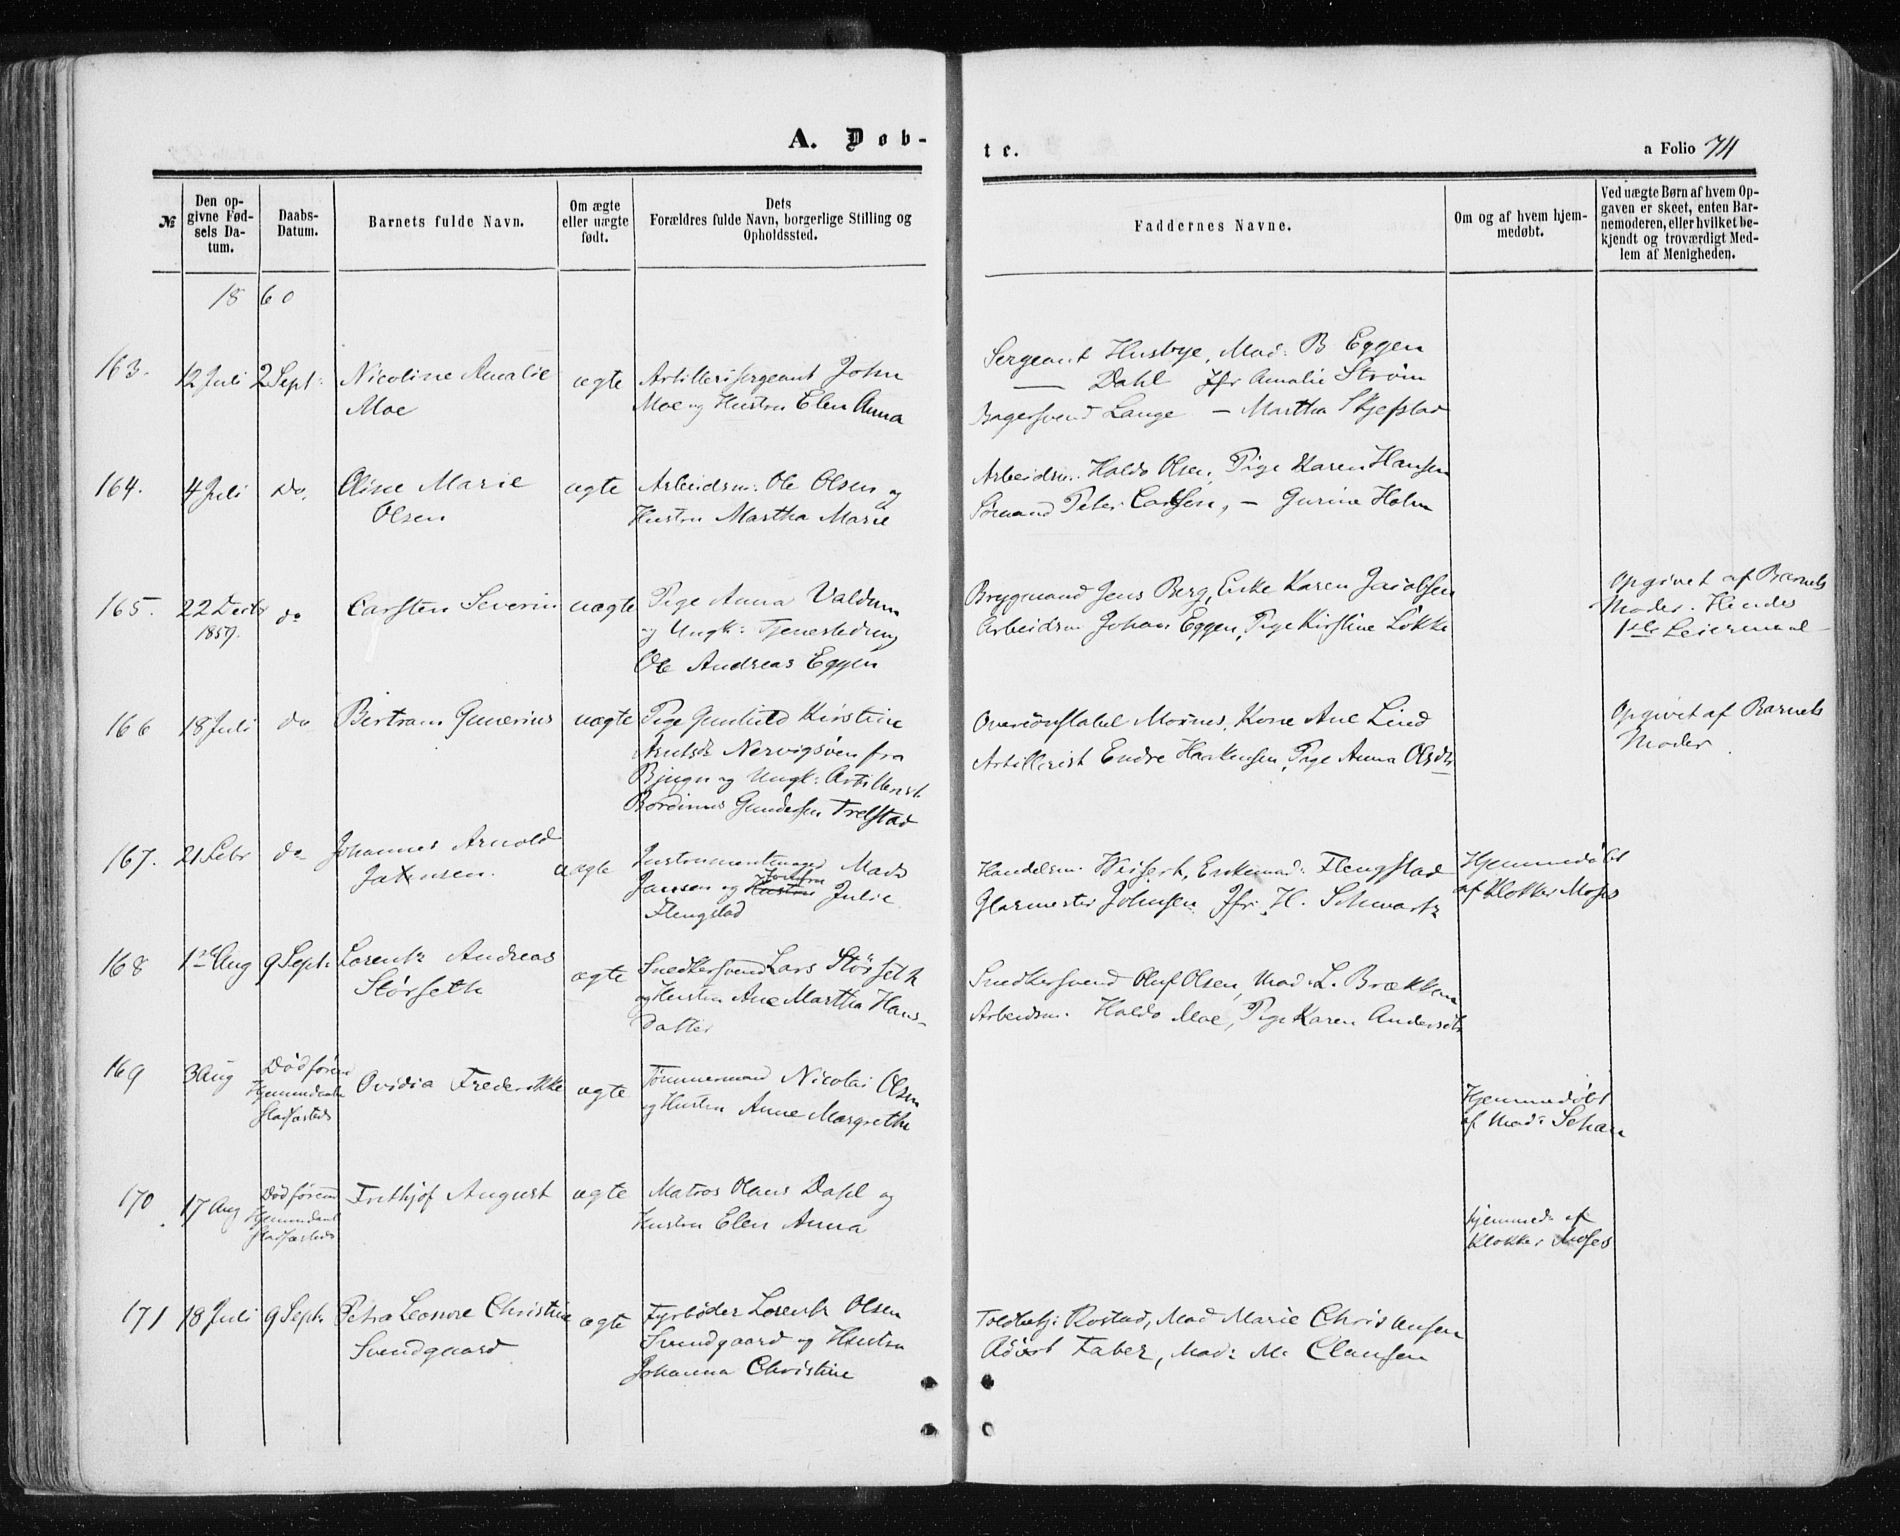 A. Døb-
te.
a Folio 74
№
Den opgivne Fødsels Datum.
Daabs-Datum.
Barnets fulde Navn.
Om ægte eller uægte født.
Dets Forældres fulde Navn, borgerlige Stilling og Opholdssted.
Faddernes Navne.
Om og af hvem hjemmedøbt.
Ved uægte Børn af hvem Opgaven er skeet, enten Barnemoderen, eller hvilket bekjendt og troværdigt Medlem af Menigheden.
1860
163.
12 Juli
2 Sept:
Nicoline Amalie
Moe
ægte
Artillerisergeant John
Moe og Hustru Elen Anna
Sergeant Husbye, Mad: B Eggen
— Dahl Jfr Amalie Strøm
Bagersvend Lange — Martha Skjefstad
164.
4 Juli
do.
Oline Marie
Olsen
ægte
Arbeidsm: Ole Olsen og
Hustru Martha Marie
Arbeidsm. Haldo Olsen, Pige Karen Hansen
Sømand Peter Carlsen, — Gurine Holm
165.
22 Decbr
1859.
do
Carsten Severin
uægte
Pige Anna Valdum
og Ungk: Tjenestedreng
Ole Andreas Eggen
Brygmand Jens Berg, Enke Karen Jacobsen
Arbeidsm Johan Eggen, Pige Kirstine Løkke
Opgivet af Barnets
Moder. Hendes
1ste Leiermaal
166
18 Juli
do
Bertram Gunerius
uægte
Pige Gunhild Kirstine
Arntsdr Nervigsøen fra
Bjugn og Ungk: Artillerist
Bordinus Gundersen Trelstad
Overconstabel Moines, Kone Ane Lind
Artillerist Endre Haskensen, Pige Anna Olsdtr
Opgivet af Barnets
Moder
167.
21 Febr
do
Johannes Arnold
Jansen.
uægte
Instrumentmager Mads
Jansen og Hustru Jomfru Julie
Flengstad
Handelsm: Weisert, Enkemad: Flengstad
Glarmester Johnsen Jfr: H. Schwartz
Hjemmedøbt
af Klokker Moses
168
1ste Aug
9 Sept:
Lorentz Andreas
Störseth
ægte
Snedkersvend Lars Störseth
og Hustru Ane Martha Hans-
datter
Snedkersvend Oluf Olsen, Mad: L. Brækken
Arbeidsm. Haldo Moe, Pige Karen Andersdtr
169
3 Aug
Død förend
Hjemmedaaben
stadfæstedes
Ovidia Frederikke
ægte
Tömmermand Nicolai Olsen
og Hustru Anne Margrethe
Hjemmedøbt
af Mad: Schan
170
17 Aug
Død förend
Hjemmedaab
stadfæstedes
Frithjof August
ægte
Matros Olaus Dahl og
Hustru Elen Anna
hjemmed: af
Klokker Moses
171
18 Juli
9 Sept:
Petra Leonore Christine
Svendgaard
ægte
Fyrbøder Lorentz Olsen
Svendgaard og Hustru
Johanna Christine
Toldbetj: Rostad, Mad Marie Christiansen
Faber, Mad: M. Clausen